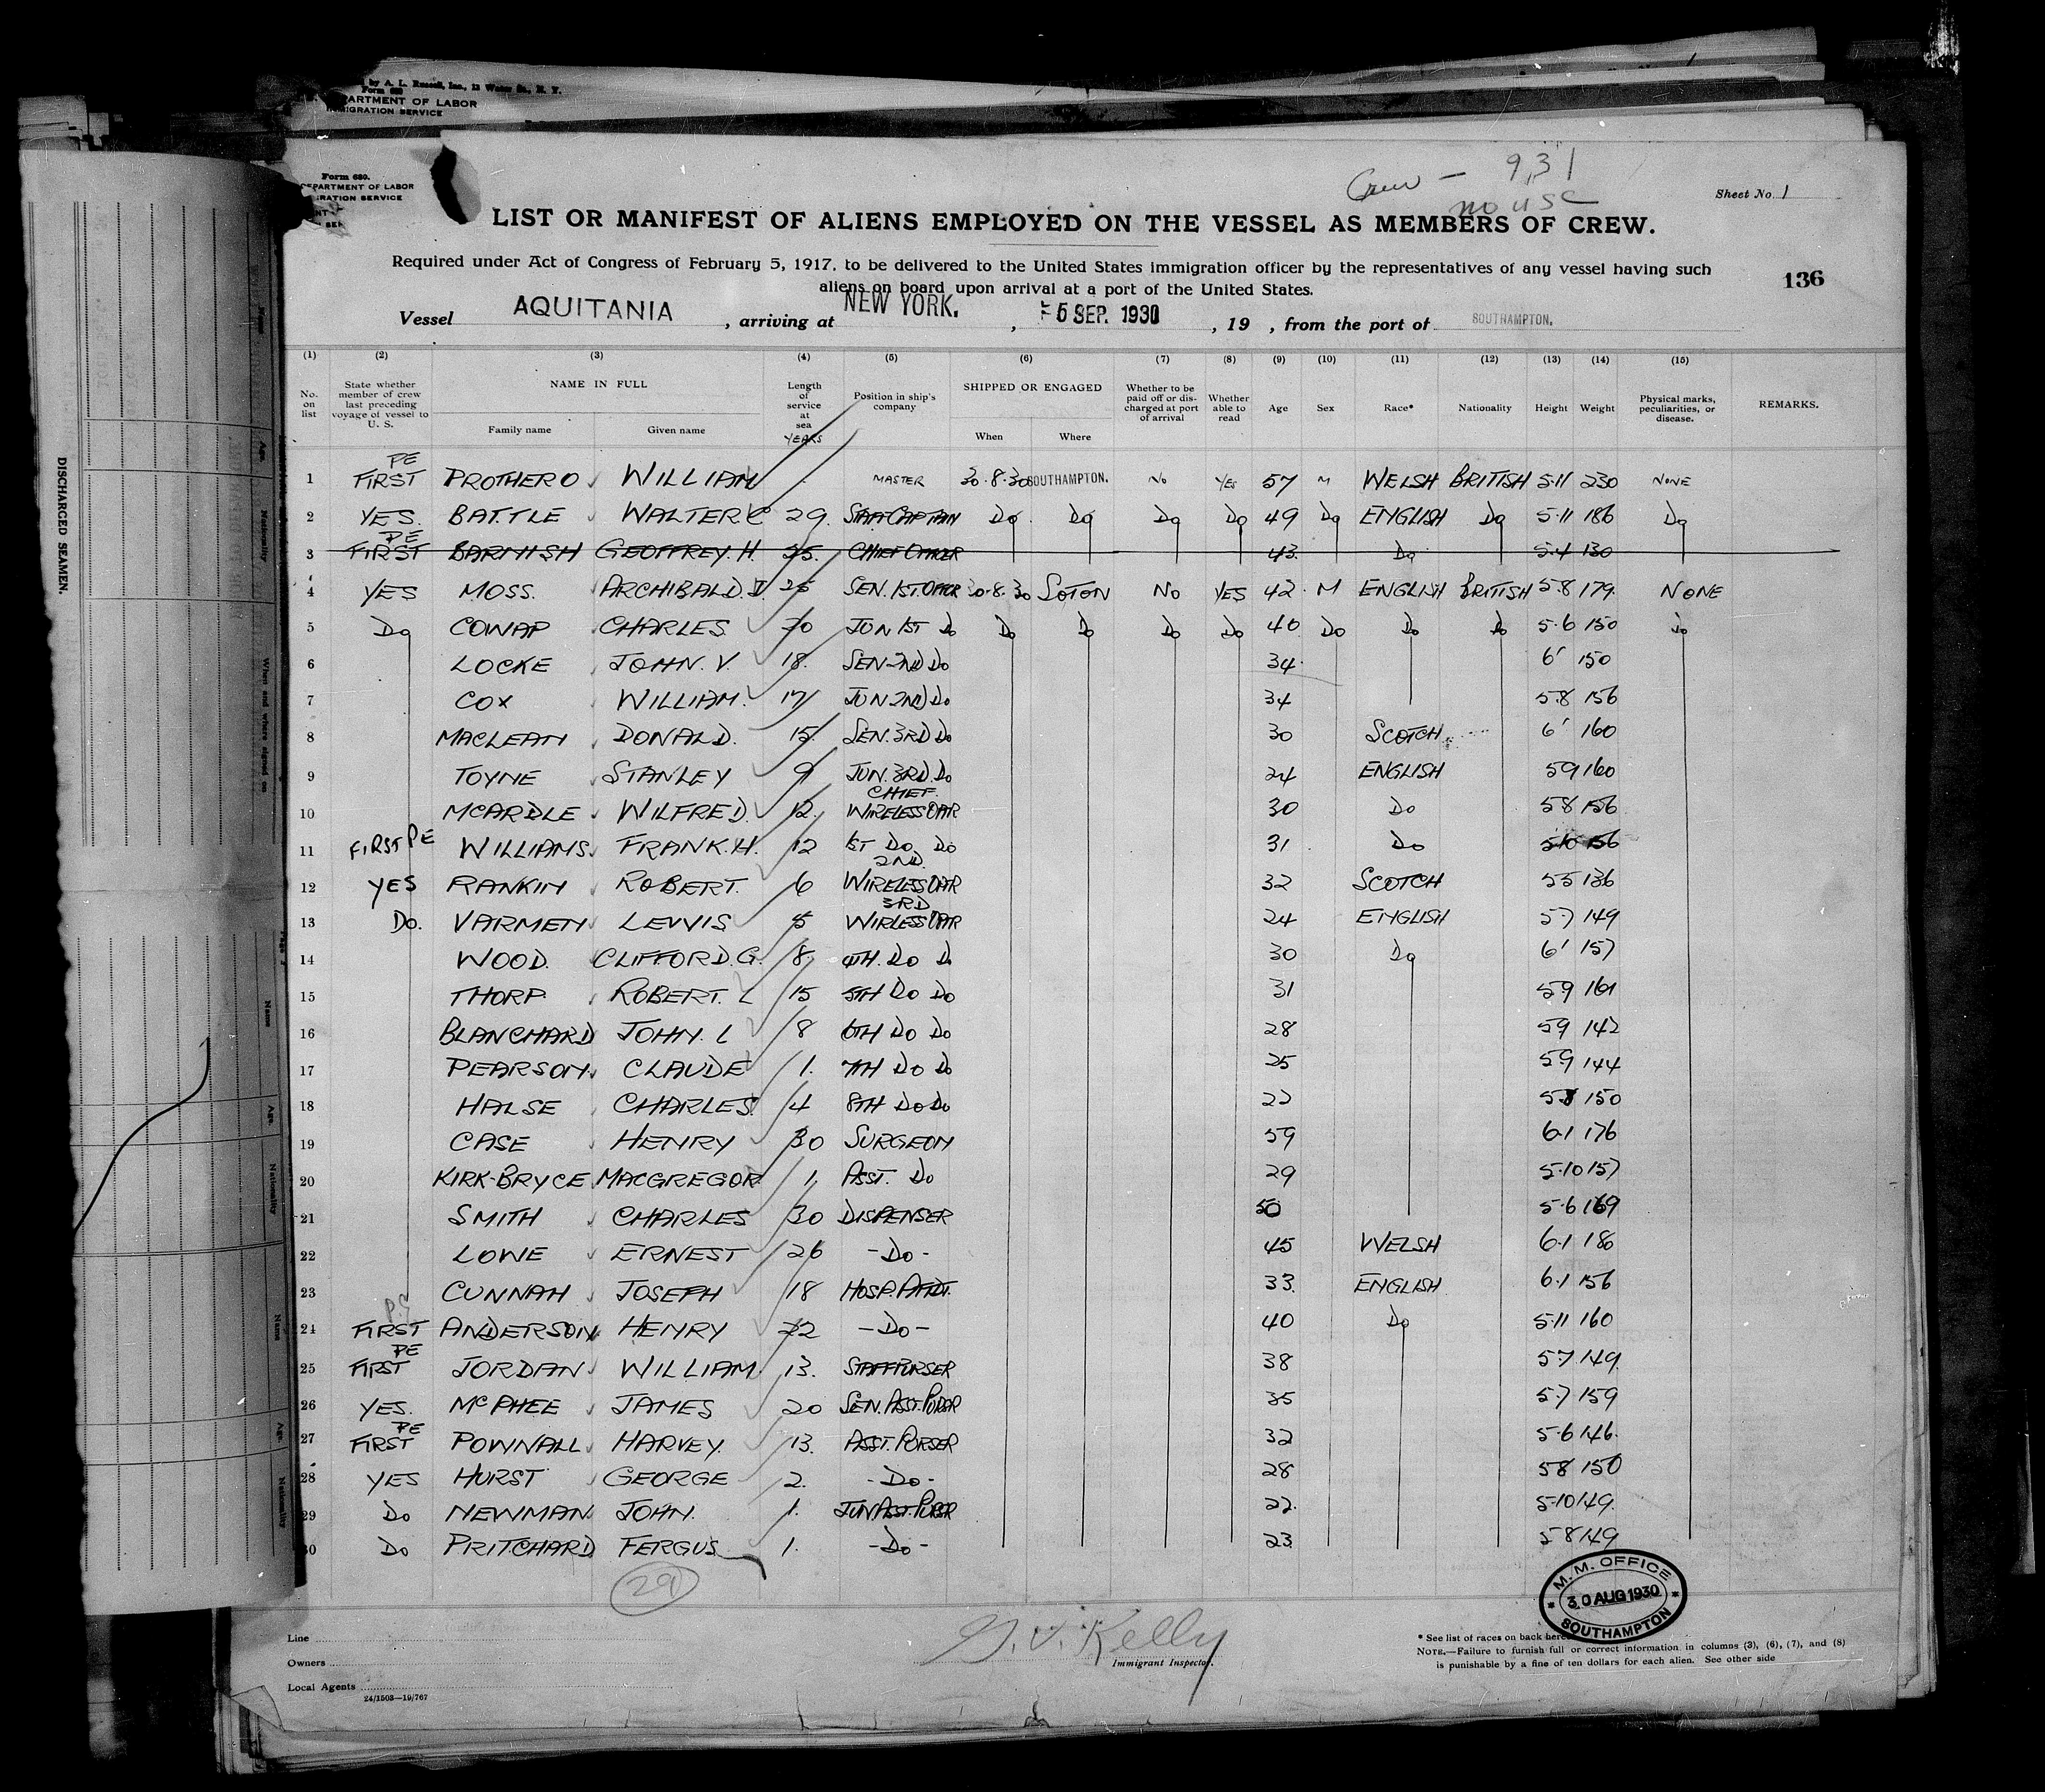 by A. L. Russell, Inc., 12 Water St., N. Y.
Form 680
DEPARTMENT OF LABOR
IMMIGRATION SERVICE
Form 680.
DEPARTMENT OF LABOR
IMMIGRATION SERVICE
Crew - 931
no USC
Sheet No. 1
LIST OR MANIFEST OF ALIENS EMPLOYED ON THE VESSEL AS MEMBERS OF CREW.
Required under Act of Congress of February 5, 1917, to be delivered to the United States immigration officer by the representatives of any vessel having such
aliens on board upon arrival at a port of the United States.
136
Vessel AQUITANIA, arriving at NEW YORK., 5 SEP. 1930, 19 , from the port of SOUTHAMPTON.
(1) (2) (3) (4) (5) (6) (7) (8) (9) (10) (11) (12) (13) (14) (15)
No. on list State whether member of crew last preceding voyage of vessel to U. S. NAME IN FULL Family name Given name Length of service at sea YEARS Position in ship's company SHIPPED OR ENGAGED When Where Whether to be paid off or discharged at port of arrival Whether able to read Age Sex Race* Nationality Height Weight Physical marks, peculiarities, or disease. REMARKS.
1 FIRST PE PROTHERO WILLIAM MASTER 30.8.30 SOUTHAMPTON. NO YES 57 M WELSH BRITISH 5.11 230 NONE
2 YES. BATTLE WALTER C 29. STAFF CAPTAIN Do Do Do Do 49 Do ENGLISH Do 5.11 186 Do
3 FIRST PE BARNISH GEOFFREY. H. CHIEF OFFICER 43. Do 5.4 130
4 YES MOSS. ARCHIBALD. 26 SEN. 1ST. OFFCR 30.8.30 SOTON NO YES 42. M ENGLISH BRITISH 5.8 179. NONE
5 Do COWAP CHARLES. JUN 1ST Do Do Do Do Do 40 Do Do Do 5.6 150 Do
6 LOCKE JOHN. V. 18. SEN 2ND Do 34. 6' 150
7 COX WILLIAM. 17 JUN 2ND Do 34 5.8 156
8 MACLEAN DONALD. 15 SEN. 3RD Do 30 SCOTCH 6' 160
9 TOYNE STANLEY 9 JUN. 3RD. Do 24 ENGLISH 5.9 160
10 MCARDLE WILFRED. 12. CHIEF WIRELESS OPTR 30 Do 5.8 156
11 FIRST PE WILLIAMS. FRANK. H. 12 1ST Do Do 31 Do 5.10 156
12 YES RANKIN ROBERT. 6 2ND WIRELESS OPTR 32 SCOTCH 5.5 136
13 Do. VARMEN LEWIS 5 3RD WIRLESS OPTR 24 ENGLISH 5.7 149
14 WOOD. CLIFFORD. G. 8. 4TH. Do Do 30 Do 6' 157
15 THORP. ROBERT. L 15 5TH Do Do 31 5.9 161
16 BLANCHARD JOHN. L 8 6TH Do Do 28 5.9 142
17 PEARSON. CLAUDE 1. 7TH Do Do 25 5.9 144
18 HALSE CHARLES. 4 8TH Do Do 22 5.8 150
19 CASE HENRY 30 SURGEON 59 6.1 176
20 KIRK-BRYCE MACGREGOR 1 ASST. Do 29 5.10 157
21 SMITH CHARLES 30 DISPENSER 50 5.6 169
22 LOWE ERNEST 26 -Do- 45 WELSH 6.1 180
23 CUNNAH JOSEPH 18 HOSP. ATTDT. 33. ENGLISH 6.1 156
24 FIRST PE ANDERSON HENRY 22 -Do- 40 Do 5.11 160
25 FIRST PE JORDAN WILLIAM. 13. STAFF PURSER 38 5.7 149.
26 YES. McPHEE JAMES 20 SEN. ASST. PURSR 35 5.7 159
27 FIRST PE POWNALL HARVEY. 13. ASST. PURSER 32 5.6 146.
28 YES HURST GEORGE 2. -Do- 28 5.8 150
29 Do NEWMAN. JOHN. 1. JUN ASST. PURSR 22. 5.10 149.
30 Do PRITCHARD FERGUS 1. -Do- 23 5.8 149
29
M. M. OFFICE
30 AUG 1930
SOUTHAMPTON
Line
Owners
Local Agents
24/1503—19/767
Kelly
Immigrant Inspector.
* See list of races on back hereof.
NOTE.—Failure to furnish full or correct information in columns (3), (6), (7), and (8)
is punishable by a fine of ten dollars for each alien. See other side
DISCHARGED SEAMEN.
Name
Age.
Nationality
When and where signed on
Name
Age.
Nationality
Name
Age.
Nationality